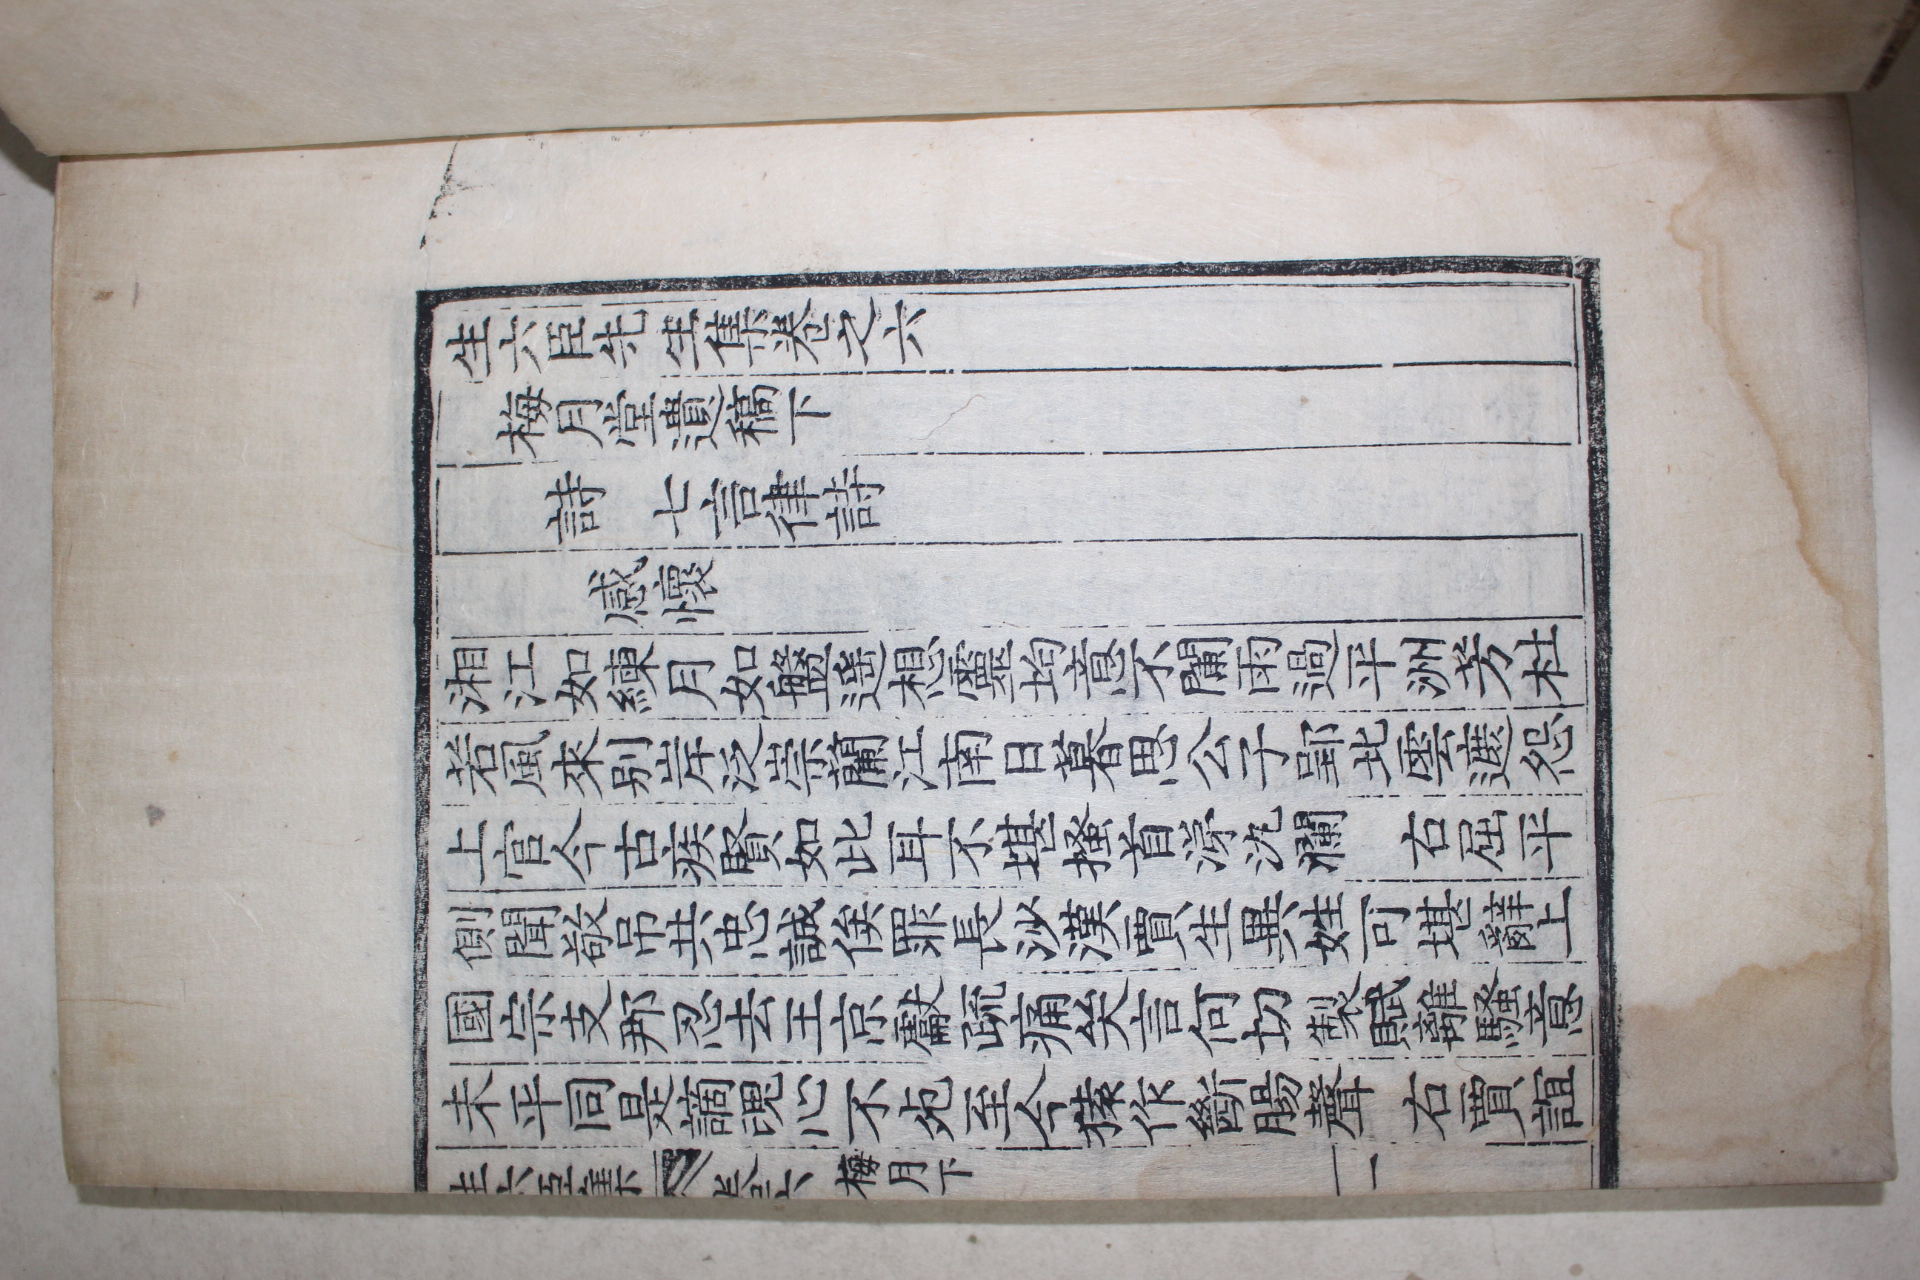 生六臣先生集卷之六
梅月堂遺稿下
詩　七言律詩
感懷
湘江如練月如盤遥想靈均意不闌雨過平洲芳杜
若風來别岸泛崇蘭江南日暮思公子郢北雲遮怨
上官今古疾賢如此耳不堪搔首涕汍瀾　右屈平
側聞敬吊共忠誠俟罪長沙漢賈生異姓可堪辭上
國宗支那忍去王京獻疏痛哭言何切製賦離騷意
未平同是謫魂心不死至今猿作斷腸聲　右賈誼
生六臣集　卷六　梅月下　一